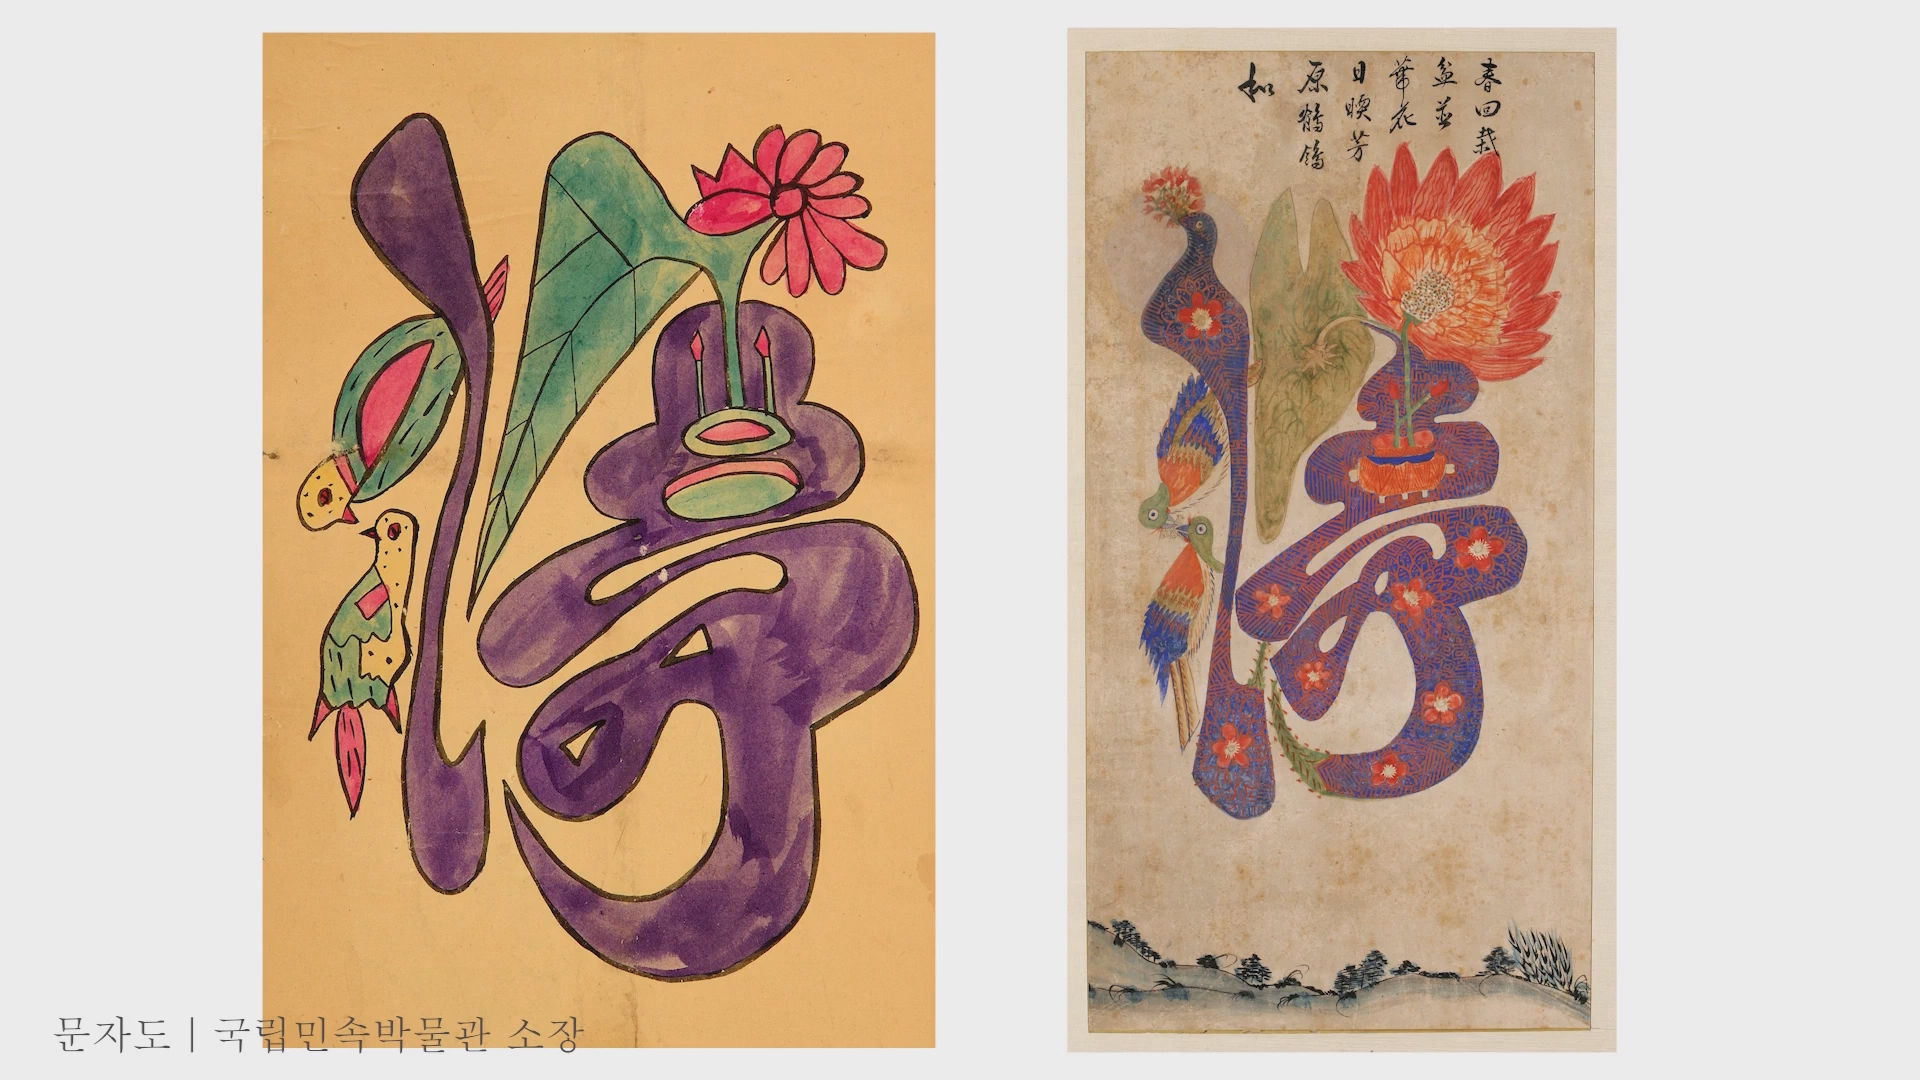 春回栽
盆並
華花
日暖芳
原鶺鴒
和
문자도 | 국립민속박물관 소장